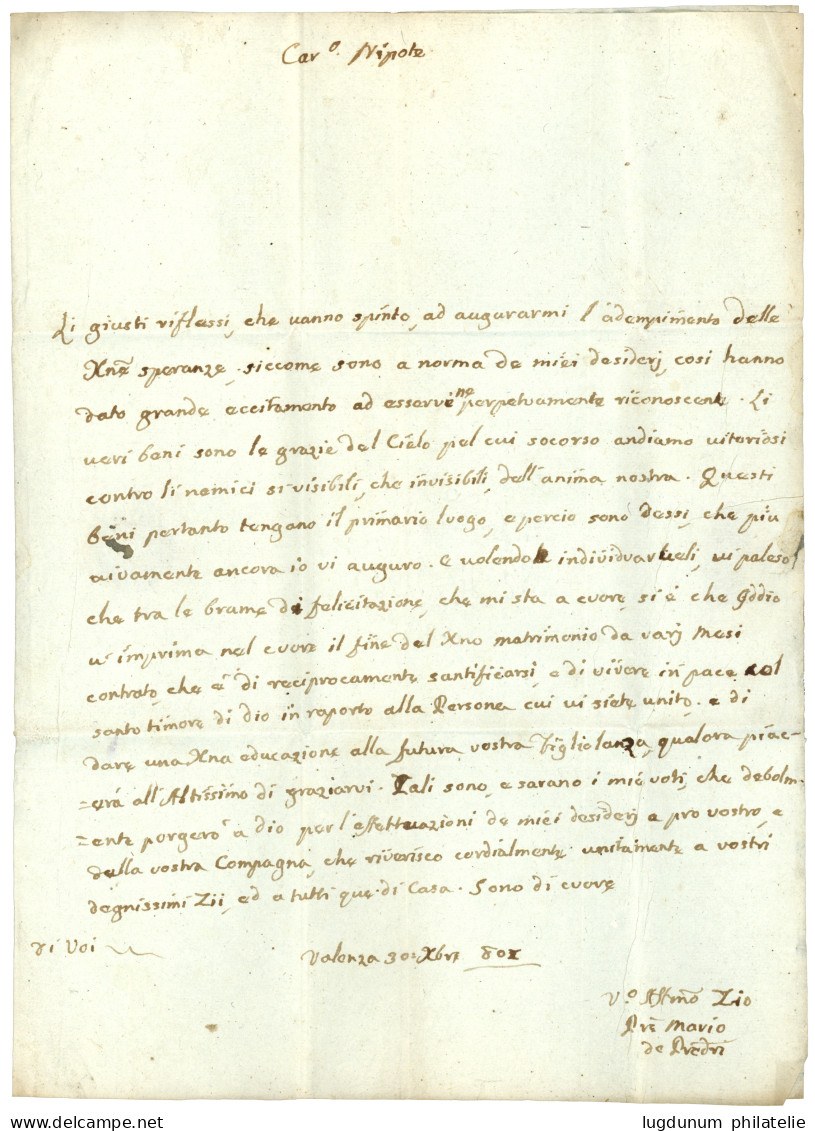 Car.º Nipote
Li giusti riflessi, che vanno spinto, ad augurarmi l'adempimento delle
Xnē speranze, siccome sono a norma de miei desiderj, cosi hanno
dato grande eccitamento ad esserviⁿᵉ perpetuamente riconoscente. Li
veri beni sono le grazie del Cielo pel cui socorso andiamo vitoriosi
contro li nemici si visibili, che invisibili, dell'anima nostra. Questi
beni pertanto tengano il primario luogo, e percio sono dessi, che piu
vivamente ancora io vi auguro. e volendo individuarveli, vi paleso
che tra le brame di felicitazione, che mi sta a cuore, si é che Iddio
v'imprima nel cuore il fine del Xno matrimonio da varj mesi
contrato, che é di reciprocamente santificarsi, e di vivere in pace col
santo timore di dio in raporto alla Persona cui vi siete unito. e di
dare una Xna educazione alla futura vostra figliolanza, qualora piac-
=erá all'Altissimo di graziarvi. Tali sono, e sarano i miei voti, che debolm-
=ente porgero' a dio per l'effettuazioni de miei desiderj e pro vostro, e
della vostra Compagna, che riverisco cordialmente unitamente a vostri
degnissimi Zii, ed a tutti que di Casa. Sono di cuore
di Voi
Valenza 30: Xbre 801
V.º Affmō Zio
Prē Mario
de
lugdunum philatelie